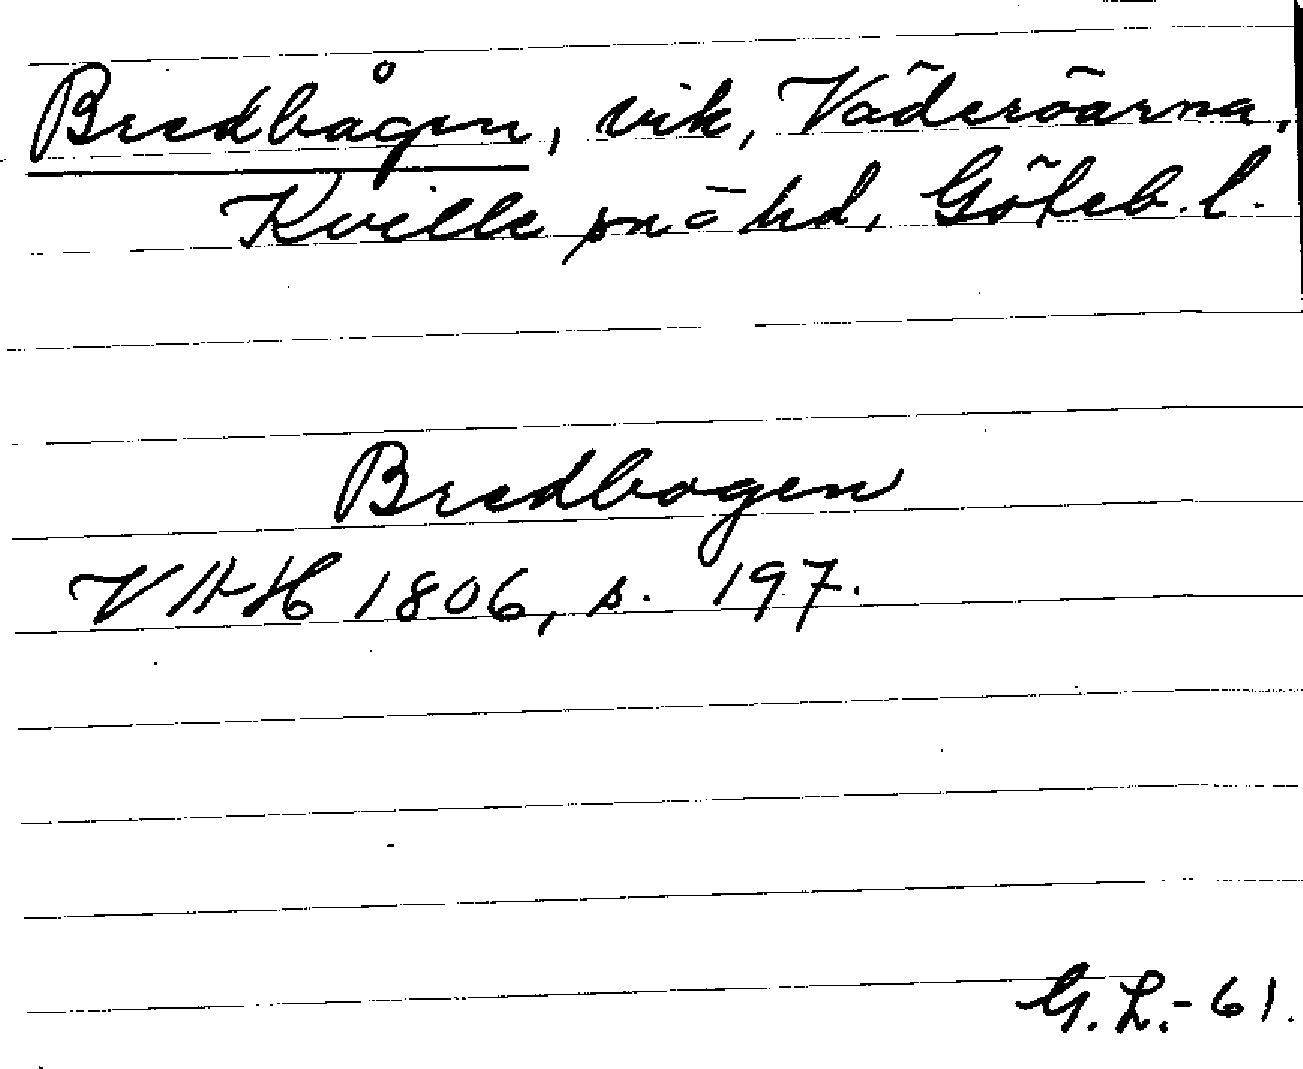 Bredbågen, vik, Väderöarna,
Kville sn o hd, Göteb. l.
Bredbogen
VAH 1806, s. 197.
G. L. - 61.